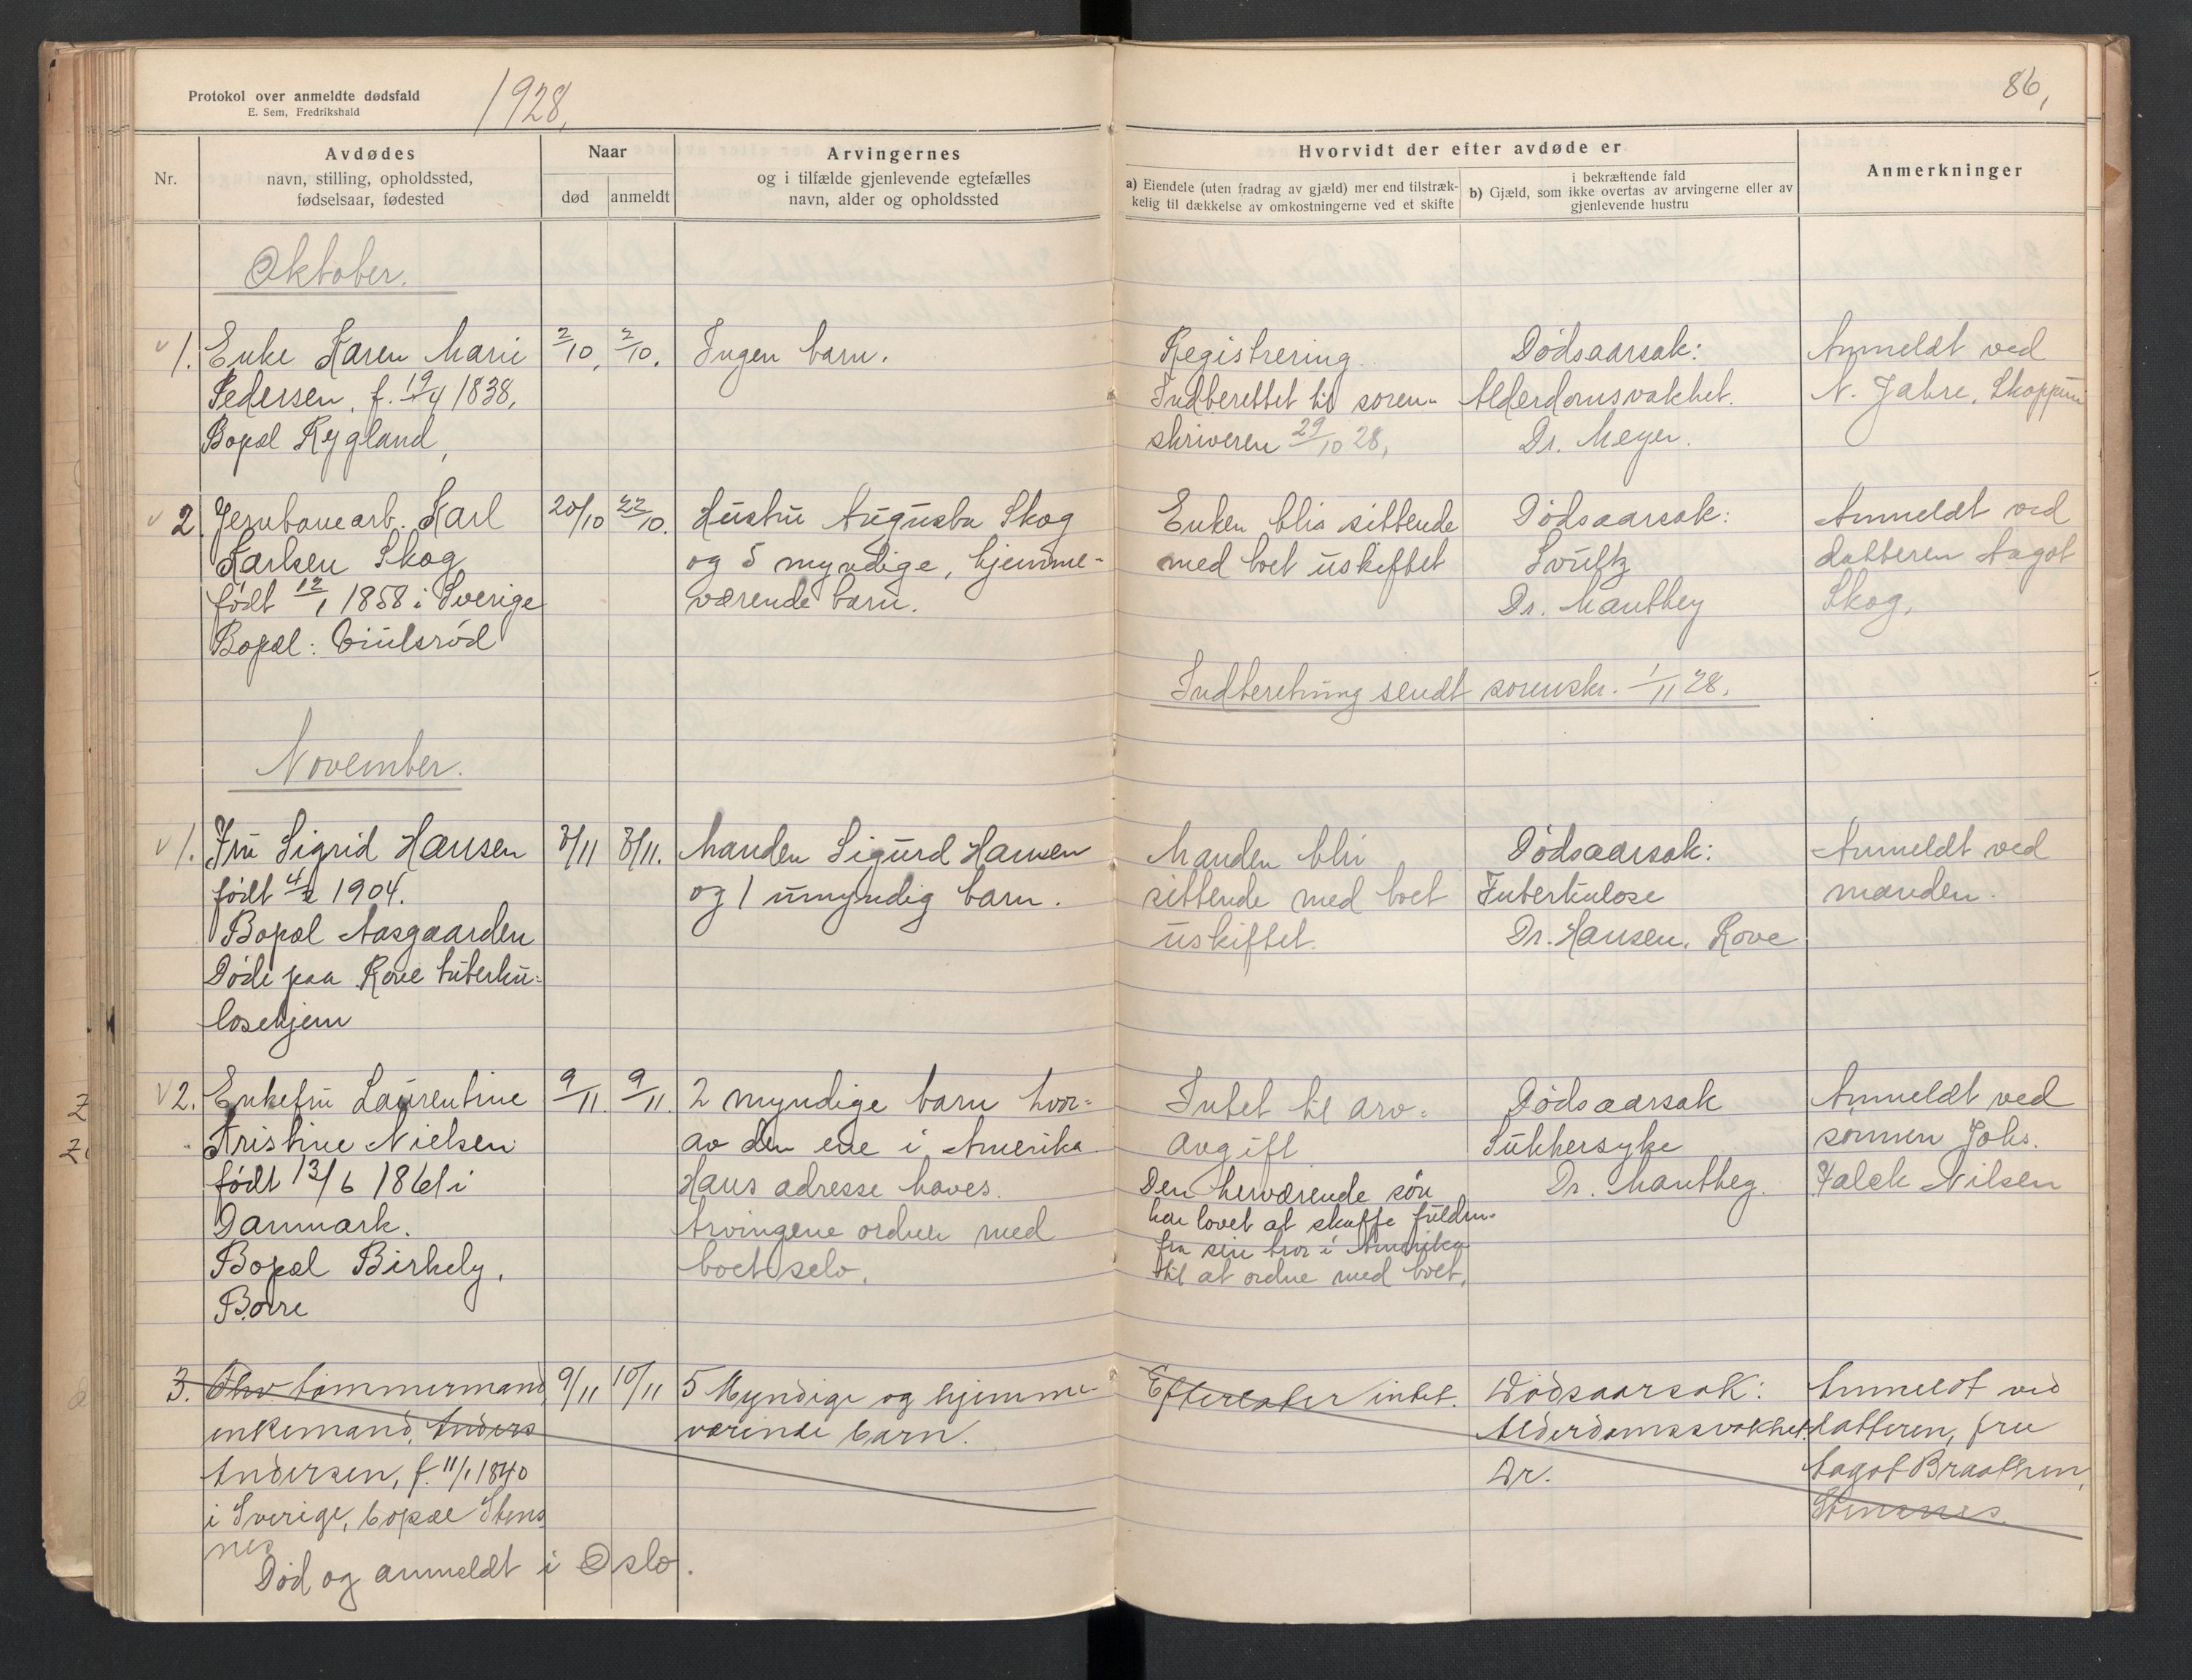 Protokol over anmeldte dødsfald
E. Sem, Fredrikshald
1928,
86,
Nr.
Avdødes
navn, stilling, opholdssted,
fødselsaar, fødested
Naar
død
anmeldt
Arvingernes
og i tilfælde gjenlevende egtefælles
navn, alder og opholdssted
Hvorvidt der efter avdøde er
a) Eiendele (uten fradrag av gjæld) mer end tilstræk-
kelig til dækkelse av omkostningerne ved et skifte
i bekræftende fald
b) Gjæld, som ikke overtas av arvingerne eller av
gjenlevende hustru
Anmerkninger
Oktober.
1. Enke Karen Marie
Pedersen, f. 19/4 1838,
Bopæl Rygland,
2/10,
2/10.
Ingen barn.
Registrering.
Indberettet til soren-
skriveren 29/10 28,
Dödsaarsak:
Alderdomsvakhet.
Dr. Meyer.
Anmeldt ved
N. Jahre, Skoppum
2. Jernbanearb. Karl
Karlsen Skog
födt 12/1 1858 i Sverige
Bopæl:
20/10
22/10.
Hustru Augusta Skog
og 5 myndige, hjemme-
værende barn.
Enken blir sittende
med boet uskiftet
Dödsaarsak:
Svultz
Dr. Manthey
Anmeldt ved
datteren Aagot
Skog,
Indberetning sendt sorenskr. 1/11 28.
November.
1. Fru Sigrid Hansen
födt 4/2 1904.
Bopæl Aasgaarden
Döde paa Rove tuberku-
losehjem
8/11
8/11.
Manden Sigurd Hansen
og 1 umyndig barn.
Manden blir
sittende med boet
uskiftet.
Dödsaarsak:
Tuberkulose
Dr. Hansen, Rove
Anmeldt ved
manden.
2. Enkefru Laurentine
Kristine Nielsen
födt 13/6 1861 i
Danmark.
Bopæl Birkely,
Borre
9/11.
9/11.
2 myndige barn hvor-
av den ene i Amerika
Hans adresse haves.
Arvingene ordner med
boet selv.
Intet til arv-
avgift
Den herværende sön
har lovet at skaffe fuldm.
fra sin bror i Amerika
til at ordne med boet,
Dödsaarsak
Sukkersyke
Dr. Manthey.
Anmeldt ved
sönnen Johs.
Falck Nilsen
3. Fhv tömmermand,
enkemand, Anders
Andersen, f. 11/1 1840
i Sverige, bopæl Stens
nes
9/11
10/11
5 Myndige og hjemme-
værende barn.
Efterlater intet.
Dödsaarsak:
Alderdomssvakhet.
Dr.
Anmeldt ved
datteren, fru
Aagot Braathen,
Stensnes.
Död og anmeldt i Oslo.